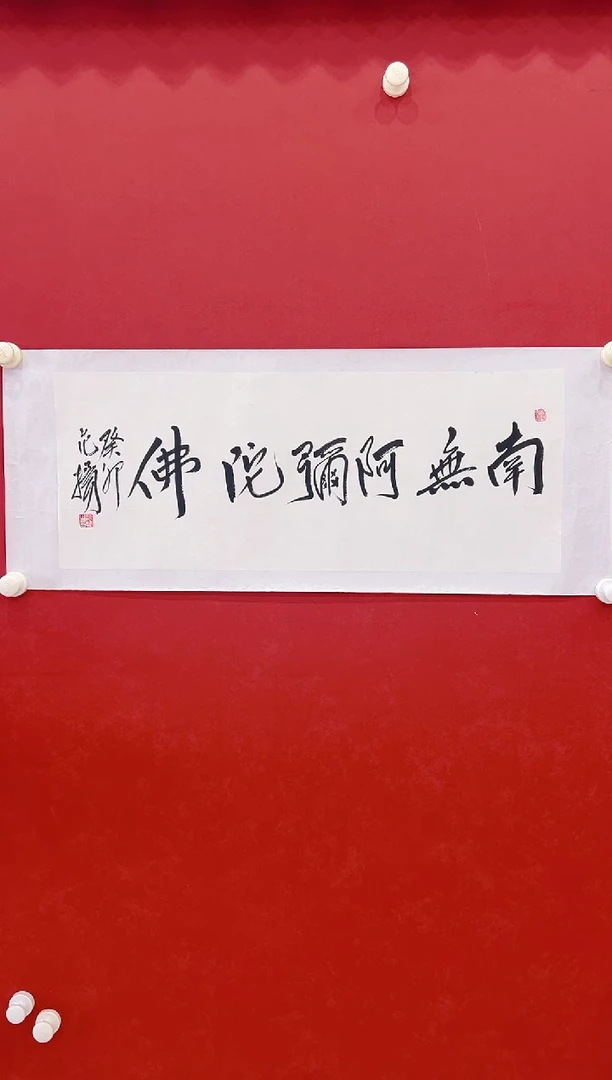 南無阿彌陀佛
癸卯
范擴